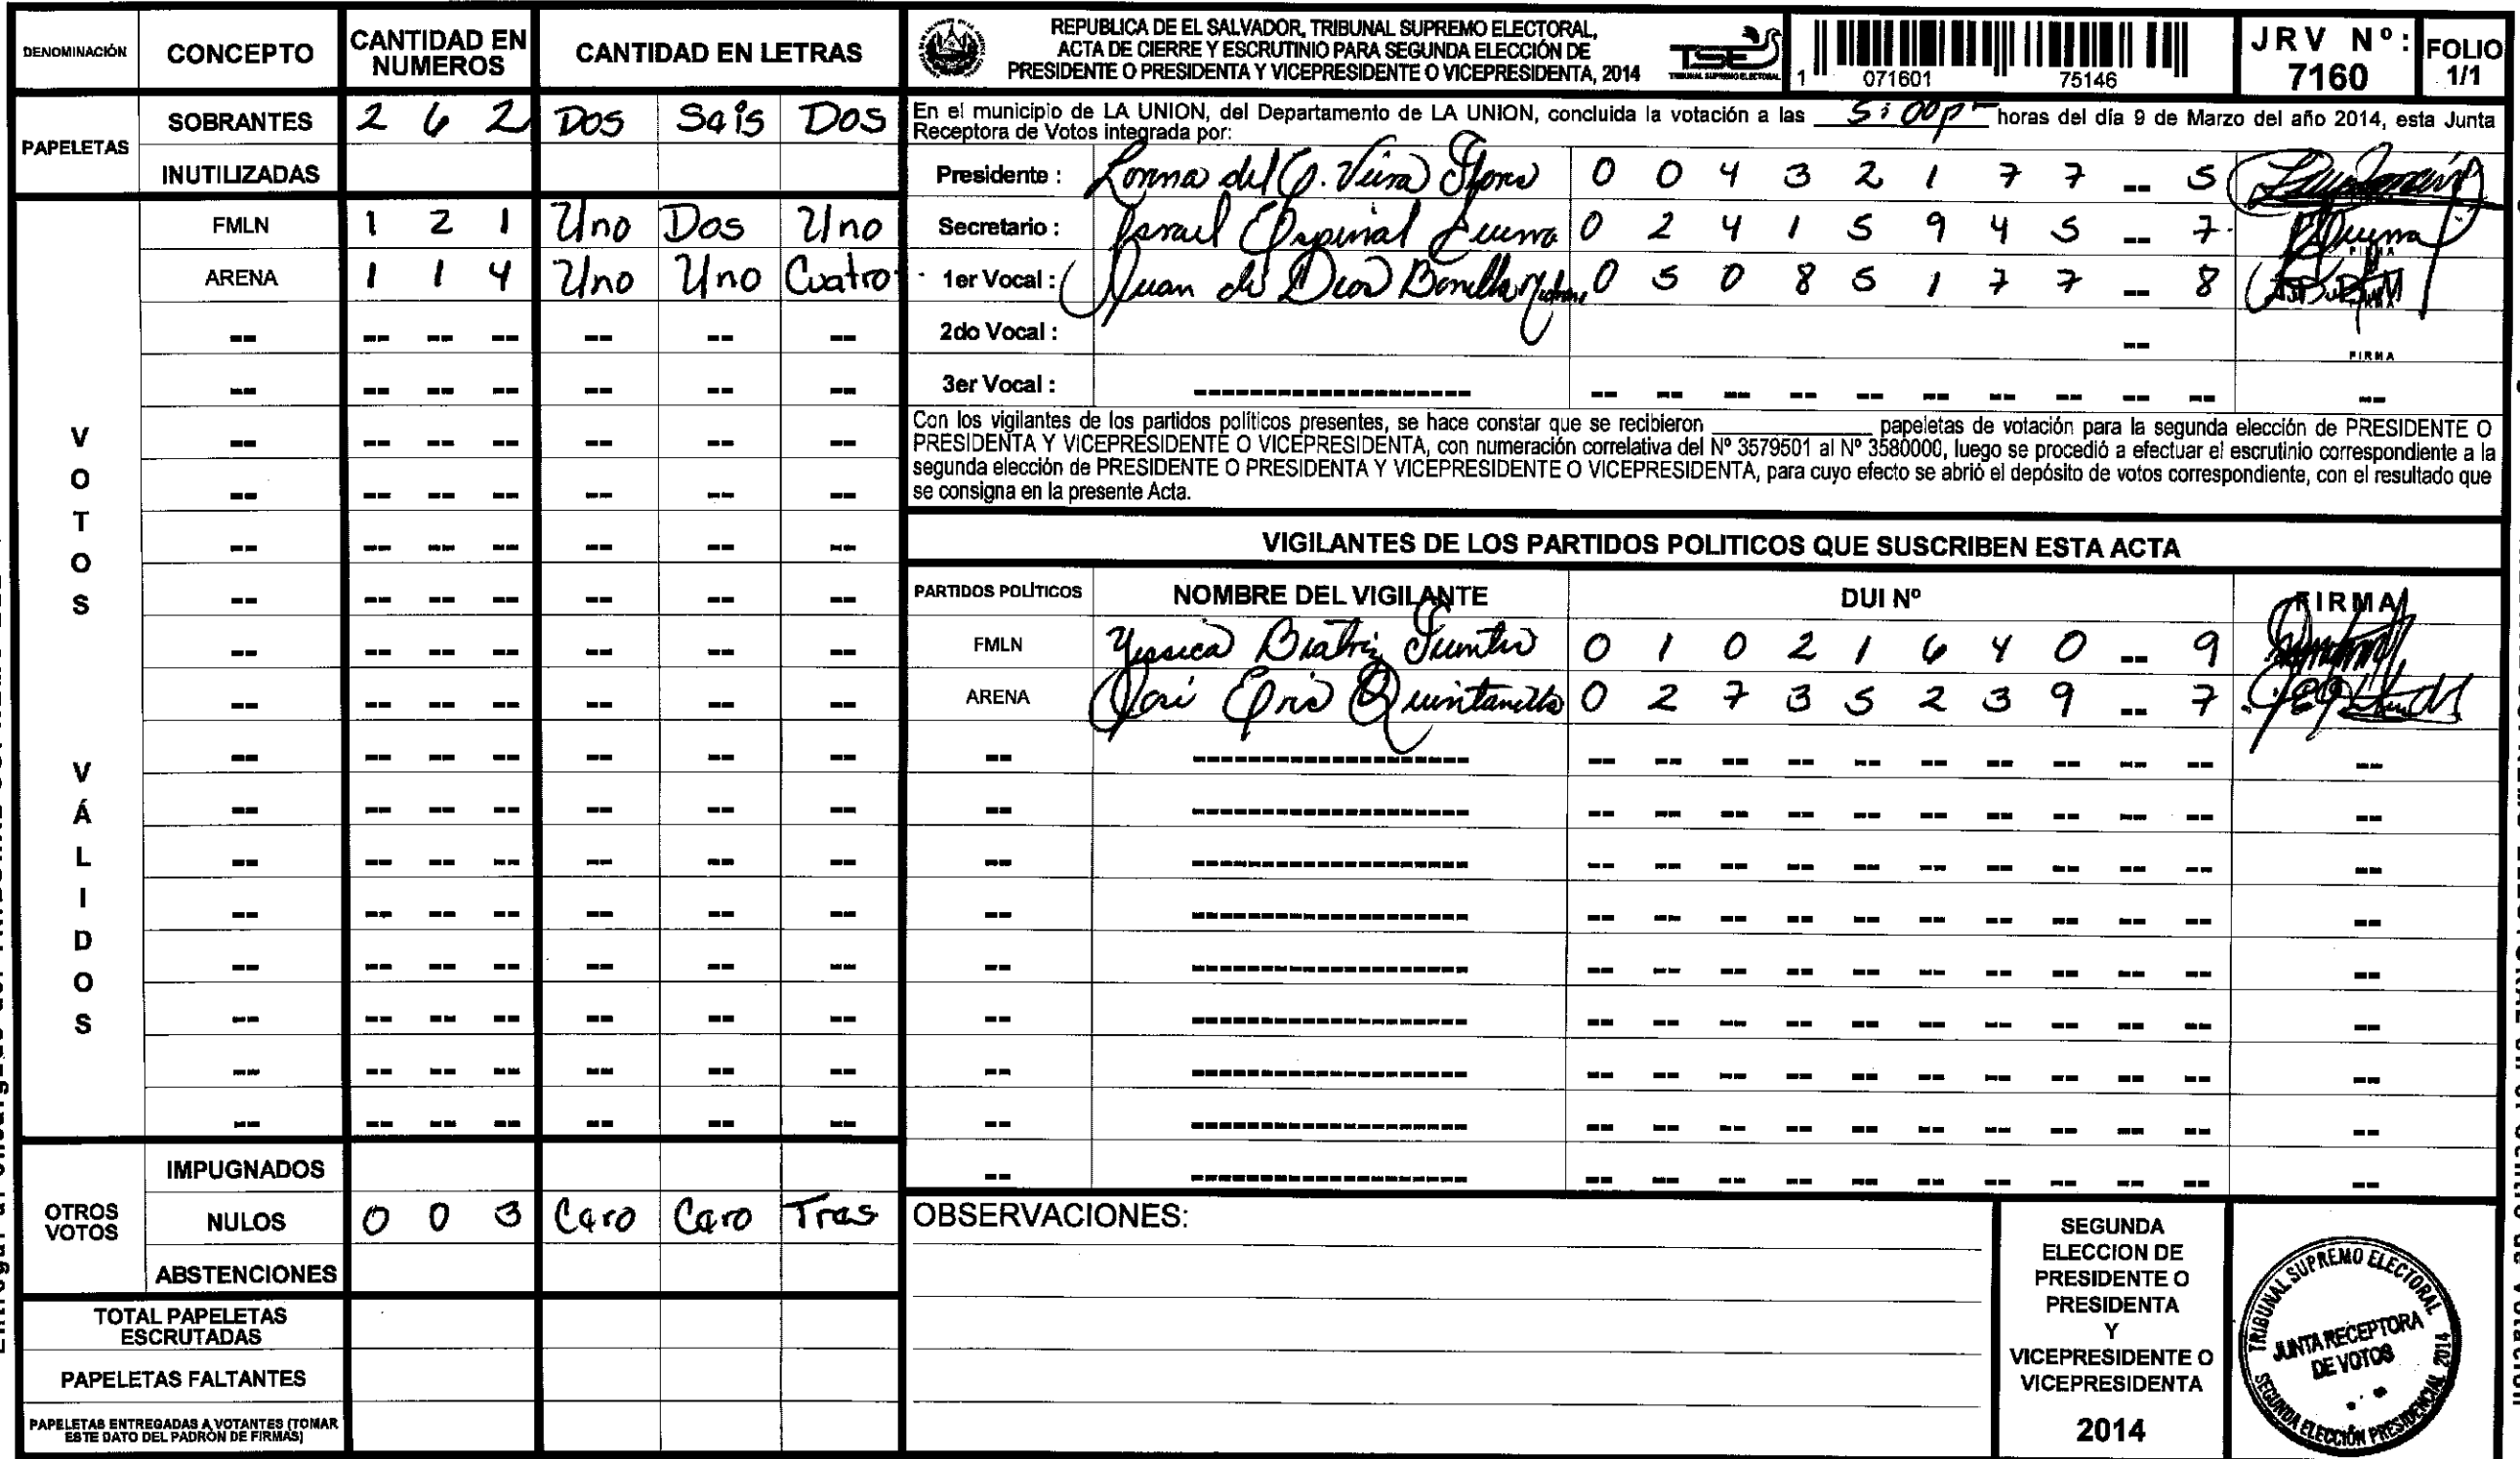 DENOMINACIÓN CONCEPTO CANTIDAD EN NUMEROS CANTIDAD EN LETRAS
PAPELETAS
SOBRANTES 2 6 2 Dos Seis Dos
INUTILIZADAS
VOTOS VÁLIDOS
FMLN 1 2 1 Uno Dos Uno
ARENA 1 1 4 Uno Uno Cuatro
OTROS VOTOS
IMPUGNADOS
NULOS 0 0 3 Cero Cero Tres
ABSTENCIONES
TOTAL PAPELETAS ESCRUTADAS
PAPELETAS FALTANTES
PAPELETAS ENTREGADAS A VOTANTES (TOMAR ESTE DATO DEL PADRÓN DE FIRMAS)
REPUBLICA DE EL SALVADOR, TRIBUNAL SUPREMO ELECTORAL,
ACTA DE CIERRE Y ESCRUTINIO PARA SEGUNDA ELECCIÓN DE
PRESIDENTE O PRESIDENTA Y VICEPRESIDENTE O VICEPRESIDENTA, 2014
TSE
TRIBUNAL SUPREMO ELECTORAL
1 071601 75146
JRV Nº: 7160
FOLIO 1/1
En el municipio de LA UNION, del Departamento de LA UNION, concluida la votación a las 5:00p horas del día 9 de Marzo del año 2014, esta Junta
Receptora de Votos integrada por:
Presidente : del Flores 0 0 4 3 2 1 7 7 -- 5
Secretario : Israel Espinal 0 2 4 1 5 9 4 5 -- 7
FIRMA
1er Vocal : Juan de Dios Bonilla 0 5 0 8 5 1 7 7 -- 8
FIRMA
2do Vocal : --
FIRMA
3er Vocal :
Con los vigilantes de los partidos políticos presentes, se hace constar que se recibieron ________ papeletas de votación para la segunda elección de PRESIDENTE O
PRESIDENTA Y VICEPRESIDENTE O VICEPRESIDENTA, con numeración correlativa del Nº 3579501 al Nº 3580000, luego se procedió a efectuar el escrutinio correspondiente a la
segunda elección de PRESIDENTE O PRESIDENTA Y VICEPRESIDENTE O VICEPRESIDENTA, para cuyo efecto se abrió el depósito de votos correspondiente, con el resultado que
se consigna en la presente Acta.
VIGILANTES DE LOS PARTIDOS POLITICOS QUE SUSCRIBEN ESTA ACTA
PARTIDOS POLÍTICOS NOMBRE DEL VIGILANTE DUI Nº FIRMA
FMLN Yessica Beatriz 0 1 0 2 1 6 4 0 -- 9
ARENA José Quintanilla 0 2 7 3 5 2 3 9 -- 7
OBSERVACIONES:
SEGUNDA
ELECCION DE
PRESIDENTE O
PRESIDENTA
Y
VICEPRESIDENTE O
VICEPRESIDENTA
2014
TRIBUNAL SUPREMO ELECTORAL
JUNTA RECEPTORA
DE VOTOS
SEGUNDA ELECCIÓN PRESIDENCIAL 2014